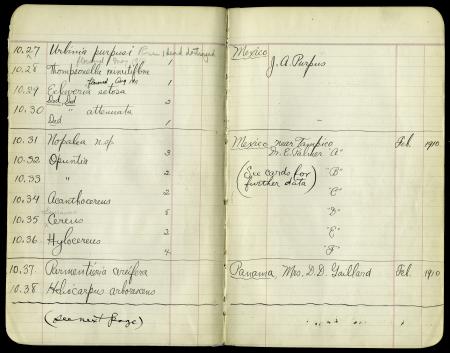 10.27 Urbinia purpusi 1 dead destroyed Mexico
flowered May 1 J. A. Purpus
10.28 Thompsonella minutiflora 1
flowered, Aug
10.29 Echeveria setosa
Ded, Ded 2
10.30 " attenuata
Ded 1
10.31 Nopalea n.sp. 3 Mexico, near Tampico Feb. 1910
10.32 Opuntia 2 Dr. E. Palmer "A"
(See cards for further data) "B"
10.33 " 2 "C"
10.34 Acanthocereus 5 "D"
10.35 Cereus 2 "E"
10.36 Hylocereus 4 "F"
10.37. Parmentiera cereifera Panama, Mrs. D. D. Gaillard Feb. 1910
10.38. Heliocarpus arborescens
(see next page)